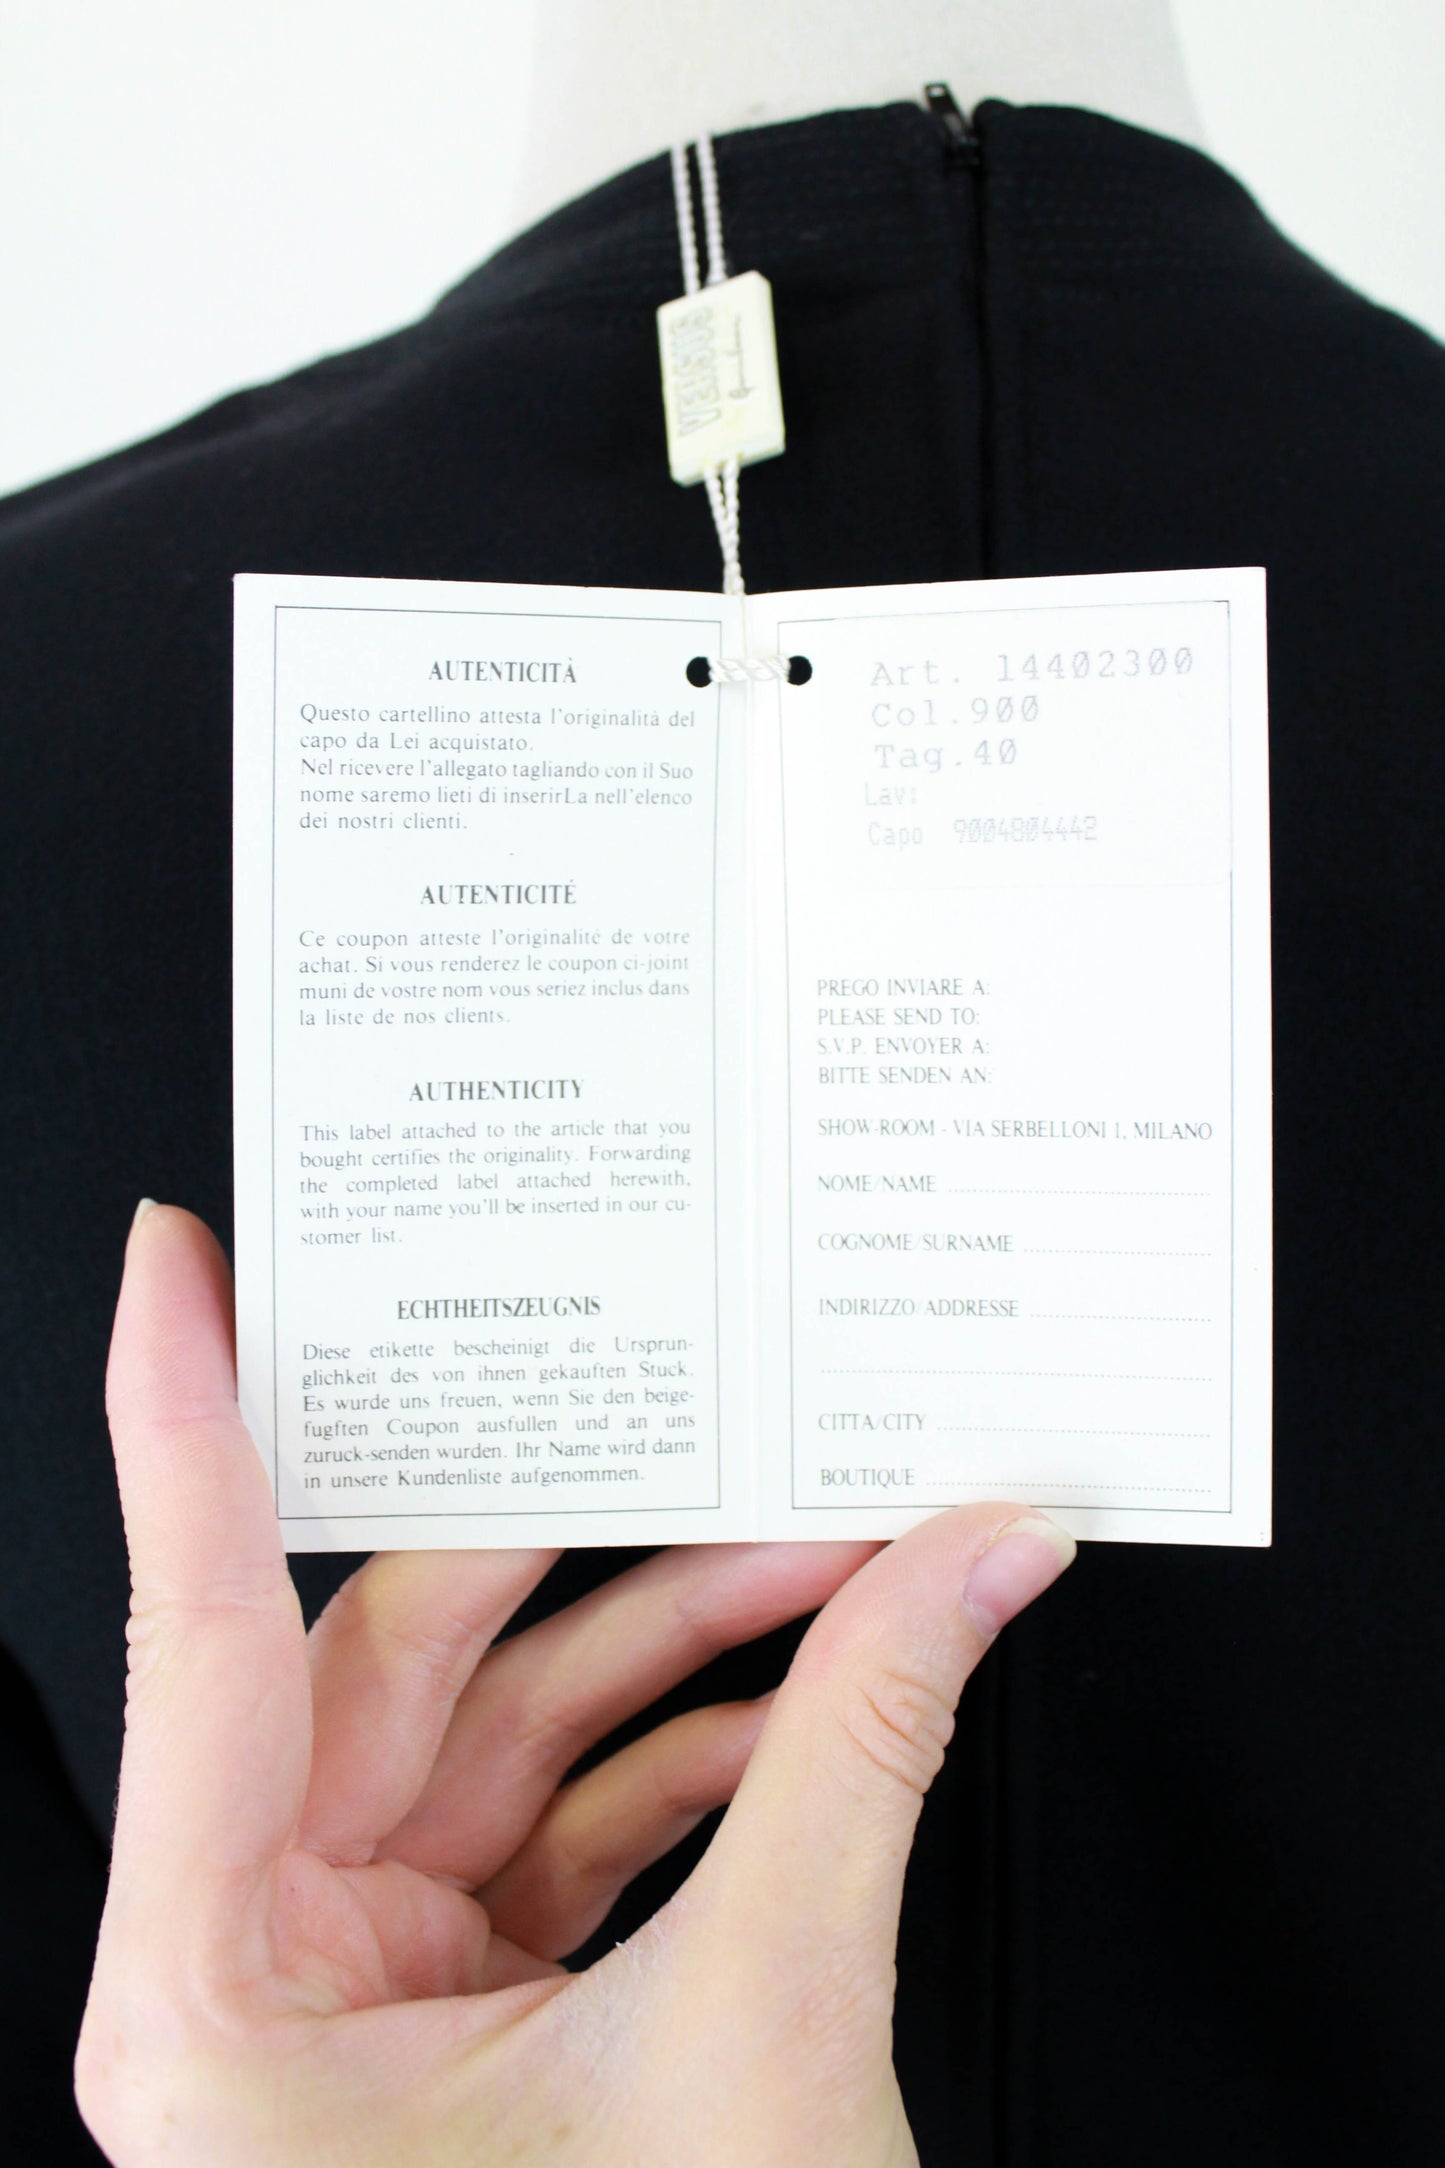 VERSUS
AUTENTICITÀ
Questo cartellino attesta l'originalità del
capo da Lei acquistato.
Nel ricevere l'allegato tagliando con il Suo
nome saremo lieti di inserirLa nell'elenco
dei nostri clienti.
AUTENTICITÉ
Ce coupon atteste l'originalité de votre
achat. Si vous renderez le coupon ci-joint
muni de vostre nom vous seriez inclus dans
la liste de nos clients.
AUTHENTICITY
This label attached to the article that you
bought certifies the originality. Forwarding
the completed label attached herewith,
with your name you'll be inserted in our cu-
stomer list.
ECHTHEITSZEUGNIS
Diese etikette bescheinigt die Ursprun-
glichkeit des von ihnen gekauften Stuck.
Es wurde uns freuen, wenn Sie den beige-
fugften Coupon ausfullen und an uns
zuruck-senden wurden. Ihr Name wird dann
in unsere Kundenliste aufgenommen.
Art. 14402300
Col.900
Tag.40
Lav:
Capo 9004804442
PREGO INVIARE A:
PLEASE SEND TO:
S.V.P. ENVOYER A:
BITTE SENDEN AN:
SHOW-ROOM - VIA SERBELLONI 1, MILANO
NOME/NAME
COGNOME/SURNAME
INDIRIZZO/ADDRESSE
CITTA/CITY
BOUTIQUE